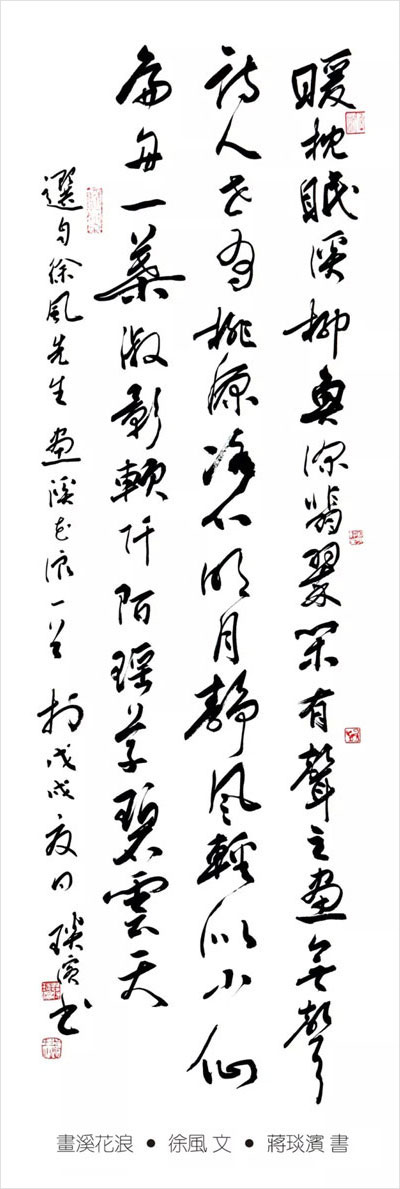 暖枕眠溪柳深翡翠閒有聲之畫無聲
詩人桃源明月靜風輕似小仙
扁舟一葉影阡陌瑤草碧雲天
選句徐風先生畫溪花浪一 於戊戌夏日 琰濱書
畫溪花浪 ● 徐風 文 ● 蔣琰濱 書